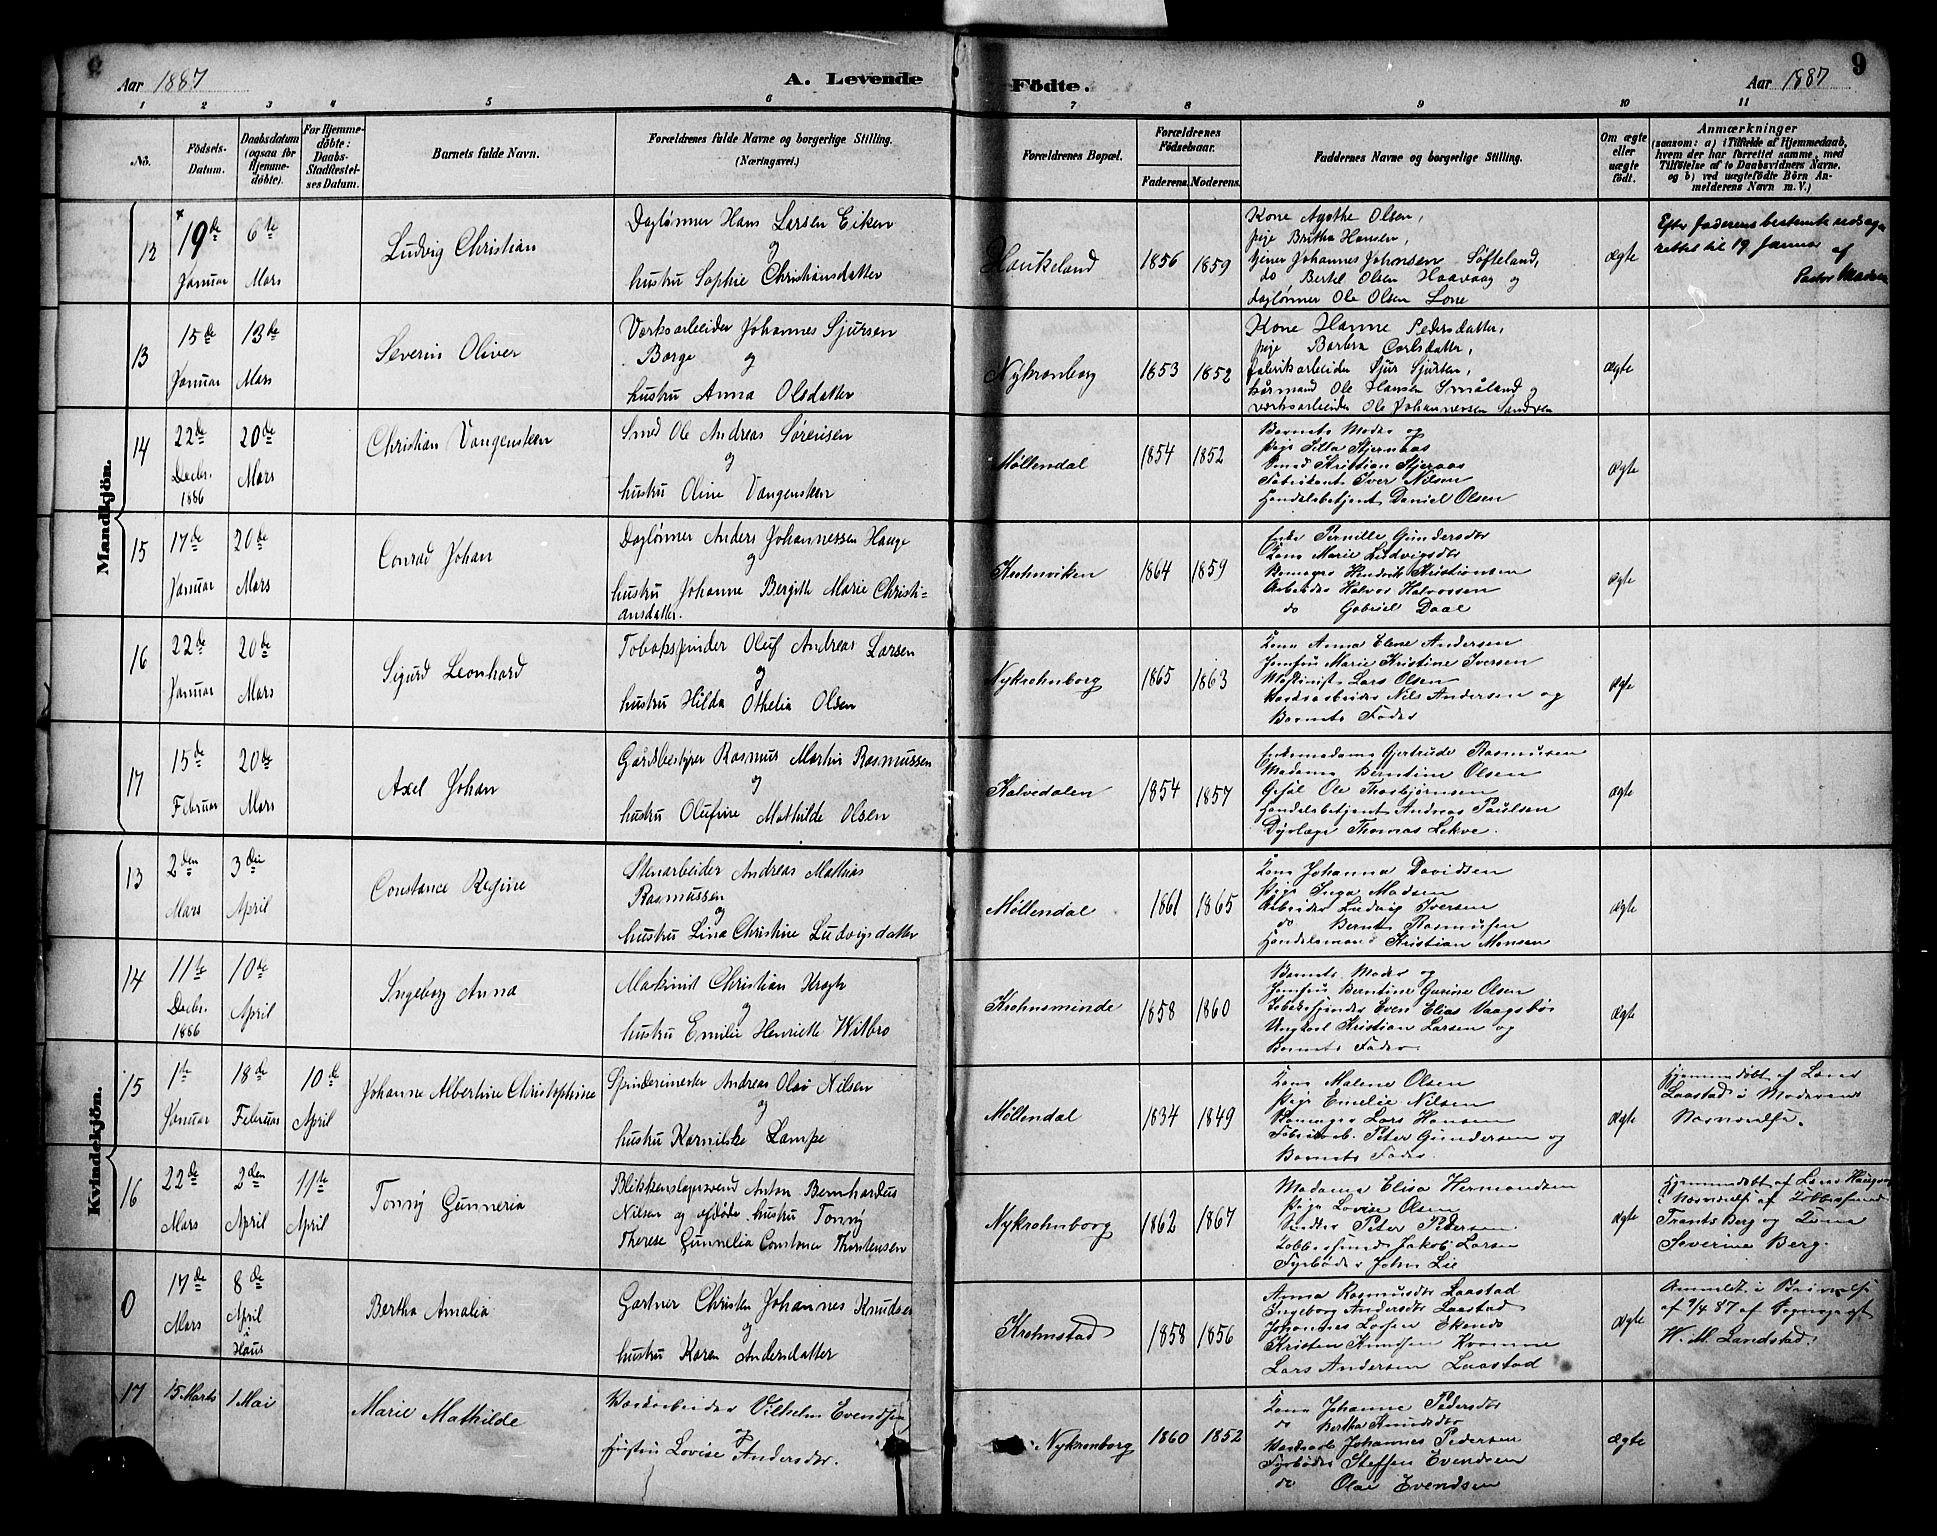 Aar 1887
A. Levende
Fødte.
Aar 1887
9
1 2 3 4 5 6 7 8 9 10 11
No.
Fødsels-
Datum.
Daabsdatum
(ogsaa for
Hjemme-
døbte).
For Hjemme-
døbte:
Daabs-
Stadfæstel-
ses Datum.
Barnets fulde Navn.
Forældrenes fulde Navne og borgerlige Stilling.
(Næringsvei.)
Forældrenes Bopæl.
Forældrenes
Fødselsaar.
Faderens. Moderens.
Faddernes Navne og borgerlige Stilling.
Om ægte
eller
uægte
født.
Anmærkninger
(saasom: a) i Tilfælde af Hjemmedaab,
hvem der har forrettet samme, med
Tilføielse af to Daabsvidners Navne.
og b) ved uægtefødte Børn An-
melderens Navn m. V.)
Mandkjön.
12
19de
Januar
6te
Mars
Ludvig Christian
Daglønner Hans Larsen Eiken
og
hustru Sophie Christiansdatter
Haukeland
1856
1859
Kone Agathe Olsen,
pige Britha Hansen,
tjener Johannes Johnsen Søfteland,
do Bertel Olsen Haavaag og
daglønner Ole Olsen Lone
ægte
Efter faderens bestemte udsagn
rettet til 19 Januar af
Pastor Madsen
13
15de
Januar
13de
Mars
Severin Oliver
Værksarbeider Johannes Sjursen
Borge og
hustru Anna Olsdatter
Nykronborg
1853
1852
Kone Hanne Pedersdatter,
pige Barbra Carlsdatter,
fabrikarbeider Sjur Sjursen,
Ole Hansen Småland og
værksarbeider Ole Johannessen Sandven
ægte
14
22de
Decbr.
1886
20de
Mars
Christian Vangensteen
Smed Ole Andreas Sørensen
og
hustru Oline Vangensteen
Møllendal
1854
1852
Barnets Moder og
pige Silla Stjernaas
Smed Kristian
Fabrikant Iver Nilsen
Handelsbetjent Daniel Olsen
ægte
15
17de
Januar
20de
Mars
Conrad Johan
Daglønner Anders Johannessen Hauge
og
hustru Johanne Bergitte Marie Christi-
ansdatter.
Krohnviken
1864
1859
Enke Pernille Gundersdtr
Kone Marie Ludvigsdtr
Bomager Hendrik Kristiansen
Arbeider Halvor Halvorsen
do Gabriel Daae
ægte
16
22de
Januar
20de
Mars
Sigurd Leonhard
Tobakspinder Oluf Andreas Larsen
og
hustru Hilda Othelia Olsen
Nykrohnborg
1865
1863
Kone Anna Elene Andersen
Jomfru Marie Kristine Iversen
Maskinist Lars Olsen
Værksarbeider Nils Andersen og
Barnets Fader
ægte
17
15de
Februar
20de
Mars
Axel Johan
Gårdbestyrer Rasmus Martin Rasmussen
og
hustru Olufine Mathilde Olsen
Kalvedalen
1854
1857
Enkemadame Gjertrude Rasmussen
Madame Berntine Olsen
Ole Thorbjørnsen
Handelsbetjent Andreas Paulsen
Dyrlæge Thomas Lekve.
ægte
Kvindekjön.
13
2den
Mars
3die
April
Constance Regine
Stenarbeider Andreas Mathias
Rasmussen
og
hustru Lina Christine Ludvigsdatter
Møllendal
1861
1865
Kone Johanna Davidsen
Pige Inga Madsen
Arbeider Ludvig Iversen
do Bernt Rasmussen
Handelsmand Kristian Monsen
ægte
14
11te
Decbr.
1886
10de
April
Ingeborg Anna
Maskinist Christian Krogh
og
hustru Emilie Henriette Witbro
Krohnsminde
1858
1860
Barnets Moder og
Jomfru Berntine Gurine Olsen
Tobaksspinder Even Elias Vaagsbø
Ungkarl Kristian Larsen og
Barnets Fader.
ægte
15
1ste
Januar
18de
Februar
10de
April
Johanne Albertine Christophine
Spinderimester Andreas Olai Nilsen
og
hustru Karnilske Lampe
Møllendal
1834
1849
Kone Malene Olsen
Pige Emelie Nilsen
Lars Hansen
Fabrikarb. Peter Gundersen og
Barnets Fader.
ægte
Hjemmedøbt af Lærer
Laastad i Moderens
Nærværelse.
16
22de
Mars
2den
April
11te
April
Tonny Gunneria
Blikkenslagersvend Anton Bernhardus
Nilsen og afdøde hustru Tonny
Therese Gunnelia Constance Thorstensen
Nykrohnborg
1862
1867
Madame Elisa Hermandsen
Pige Lovise Olsen
Snedker Peter Pedersen
Kobberslager Jakob Larsen
Fyrbøder John Lie
ægte
Hjemmedøbt af Lærer
i Nærværelse af Kobbersmed
Trants Berg og Kone
Severine Berg.
0
17de
Mars
8de
April
i
Haus
Bertha Amalia
Gartner Christen Johannes Knudsen
og
hustru Karen Andersdatter
Krohnstad
1858
1856
Anna Rasmusdtr Laastad
Ingeborg Andersdtr Laastad
Johannes Larsen Ekende
Kristen Knudsen Kvamme
Lars Andersen Laastad
ægte
Anmeldt i Skrivelse
af 9/4 87 af Sogneprest
W. M. Landstad.
17
15 Marts
1 Mai
Marie Mathilde
Værksarbeider Vilhelm Evendsen
og
Hustru Lovise Andersdtr.
Nykronborg
1860
1852
Kone Johanne Pedersdtr
do Bertha Knudsdtr
Værksarb Johannes Pedersen
Fyrbøder Steffen Evendsen
do Olai Evendsen
ægte